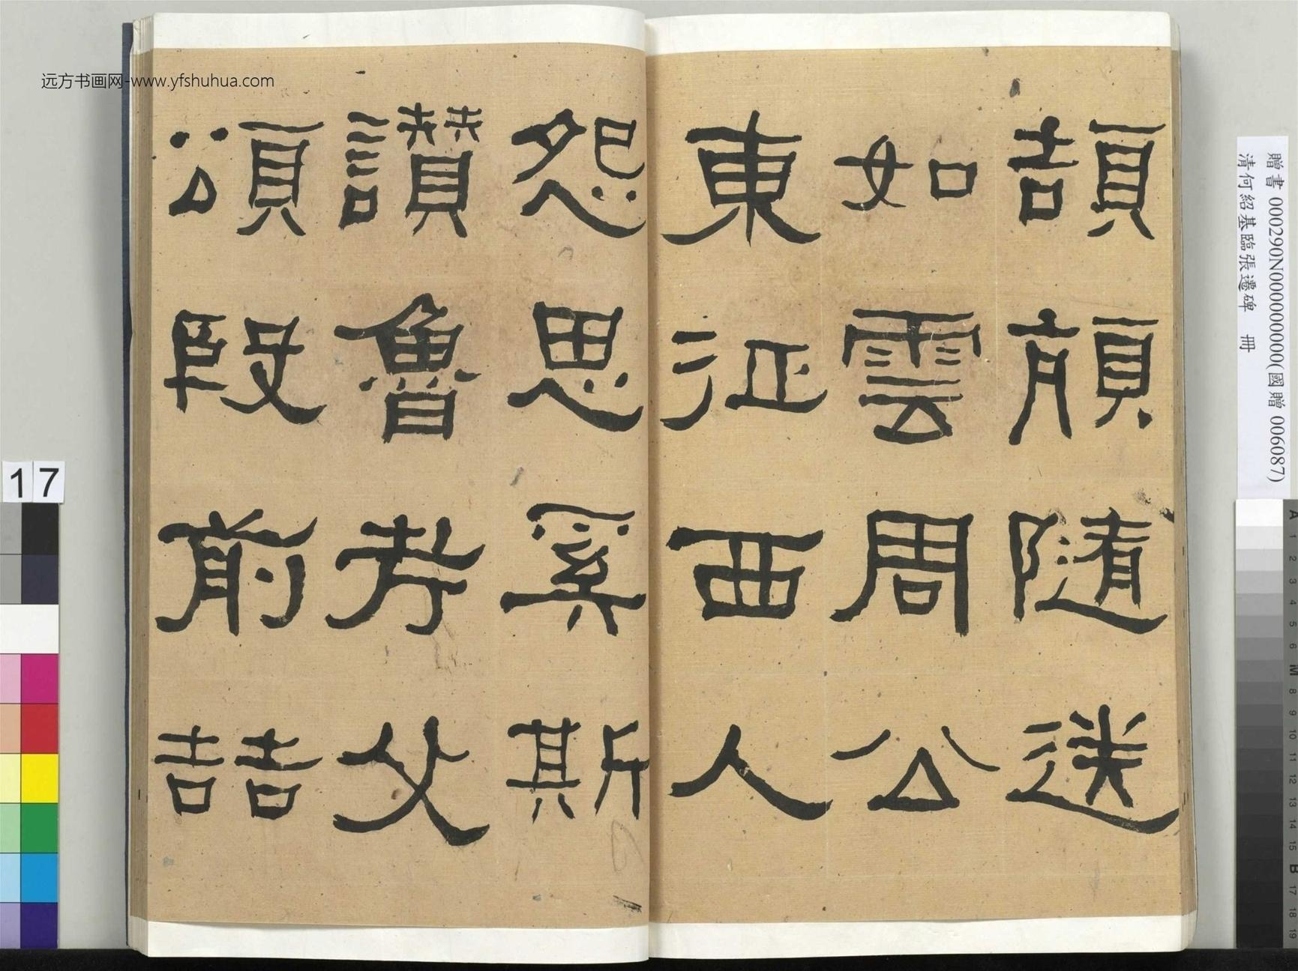 頡頏隨送
如雲周公
東征西人
怨思奚斯
讚魯考父
頌殷前喆
远方书画网-www.yfshuhua.com
贈書 000290N000000000(國贈 006087)
清何紹基臨張遷碑 冊
17